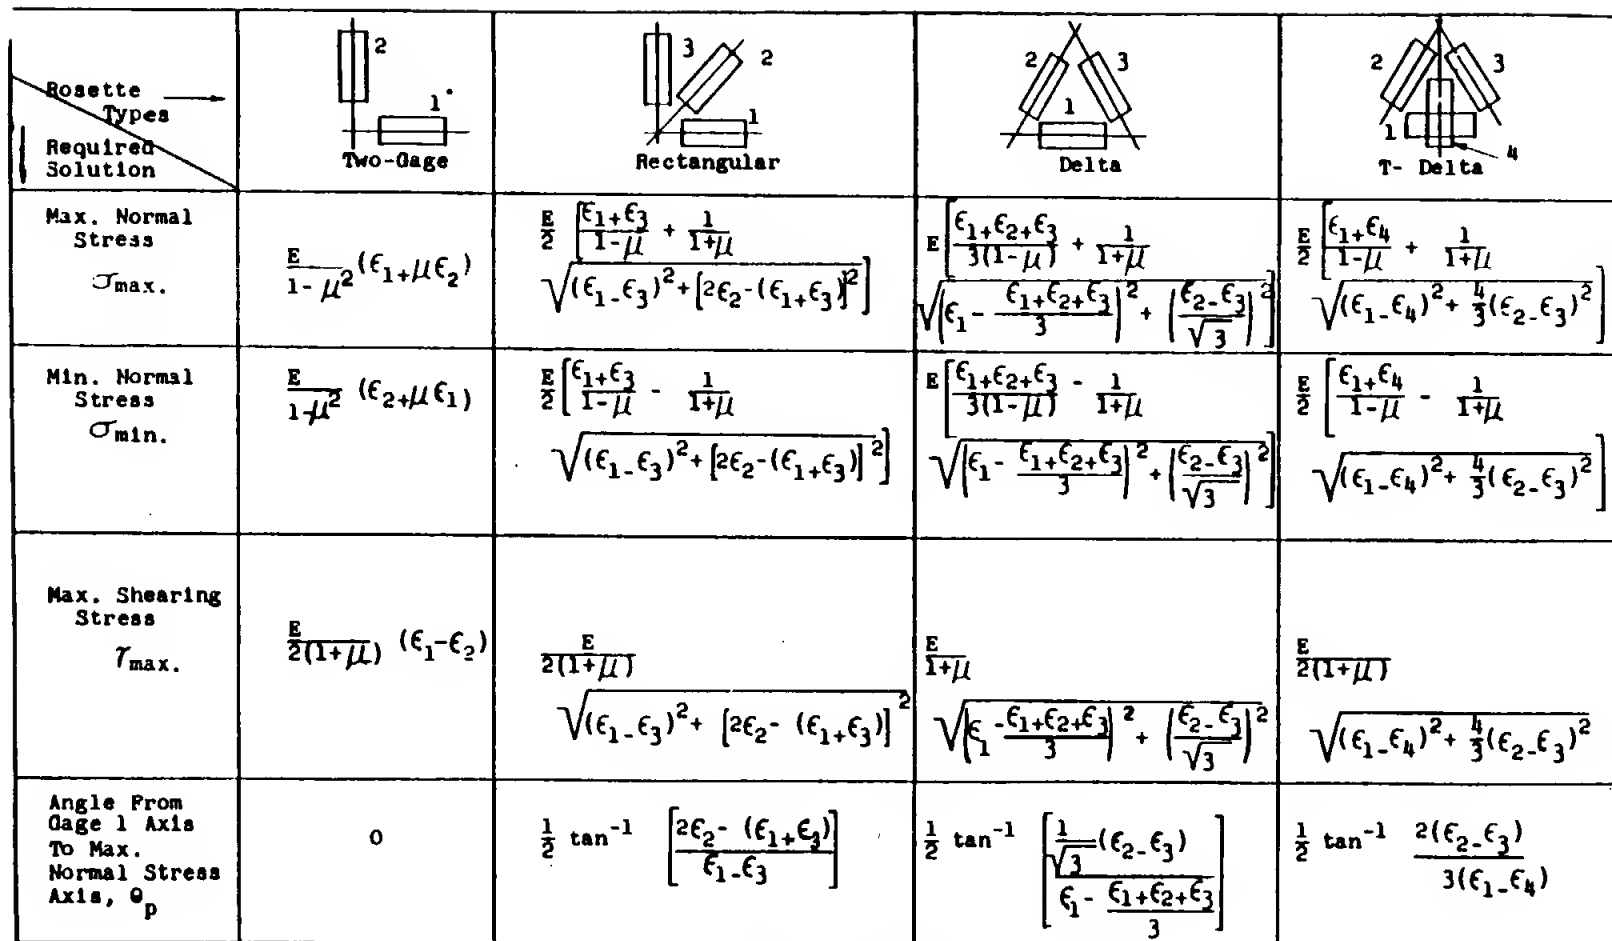 Rosette Types
Required Solution
2
1
Two-Gage
3
2
1
Rectangular
2
3
1
Delta
2
3
1
4
T- Delta
Max. Normal
Stress
σmax.
E/(1-μ²) (ϵ1+μϵ2)
E/2 [(ϵ1+ϵ3)/(1-μ) + 1/(1+μ)
√((ϵ1-ϵ3)²+[2ϵ2-(ϵ1+ϵ3)]²)]
E[(ϵ1+ϵ2+ϵ3)/(3(1-μ)) + 1/(1+μ)
√((ϵ1-(ϵ1+ϵ2+ϵ3)/3)² + ((ϵ2-ϵ3)/√3)²)]
E/2 [(ϵ1+ϵ4)/(1-μ) + 1/(1+μ)
√((ϵ1-ϵ4)²+ 4/3(ϵ2-ϵ3)²)]
Min. Normal
Stress
σmin.
E/(1-μ²) (ϵ2+μϵ1)
E/2 [(ϵ1+ϵ3)/(1-μ) - 1/(1+μ)
√((ϵ1-ϵ3)²+[2ϵ2-(ϵ1+ϵ3)]²)]
E[(ϵ1+ϵ2+ϵ3)/(3(1-μ)) - 1/(1+μ)
√((ϵ1-(ϵ1+ϵ2+ϵ3)/3)² + ((ϵ2-ϵ3)/√3)²)]
E/2 [(ϵ1+ϵ4)/(1-μ) - 1/(1+μ)
√((ϵ1-ϵ4)²+ 4/3(ϵ2-ϵ3)²)]
Max. Shearing
Stress
τmax.
E/(2(1+μ)) (ϵ1-ϵ2)
E/(2(1+μ))
√((ϵ1-ϵ3)²+ [2ϵ2- (ϵ1+ϵ3)]²)
E/(1+μ)
√((ϵ1-(ϵ1+ϵ2+ϵ3)/3)² + ((ϵ2-ϵ3)/√3)²)
E/(2(1+μ))
√((ϵ1-ϵ4)²+ 4/3(ϵ2-ϵ3)²)
Angle From
Gage 1 Axis
To Max.
Normal Stress
Axis, θp
0
1/2 tan⁻¹ [(2ϵ2- (ϵ1+ϵ3))/(ϵ1-ϵ3)]
1/2 tan⁻¹ [(1/√3(ϵ2-ϵ3))/(ϵ1-(ϵ1+ϵ2+ϵ3)/3)]
1/2 tan⁻¹ 2(ϵ2-ϵ3)/3(ϵ1-ϵ4)